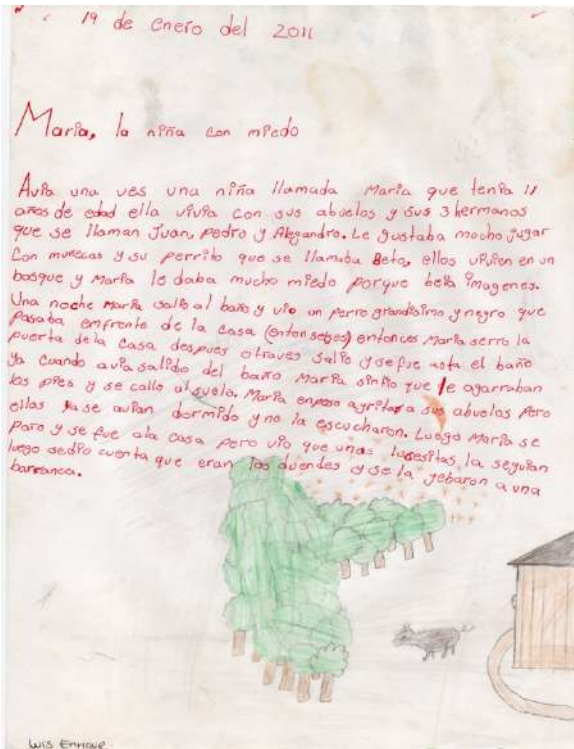 19 de enero del 2011
Maria, la niña con miedo
Avia una ves una niña llamada Maria que tenia 11
años de edad ella vivia con sus abuelas y sus 3 hermanos
que se llaman Juan, pedro y Alegandro. Le gustaba mocho jugar
con muñecas y su perrito que se llamaba Beta, ellos vivien en un
bosque y Maria le daba mucho miedo porque beia imagenes.
Una noche Maria salio al baño y vio un perro grandisimo y negro que
pasaba emfrente de la casa (entonseses) entonces Maria serro la
puerta dela casa despues otraves salio y se fue asta el baño
ya cuando avia salido del baño Maria sintio que le agarraban
los pies y se callo al suelo. Maria enpeso agritar a sus abuelas pero
ellas ya se avian dormido y no la escucharon. Luego Maria se
paro y se fue ala casa pero vio que unas lucesitas la seguian
luego sedio cuenta que eran los duendes y se la yebaron a una
barranca.
Luis Enrique